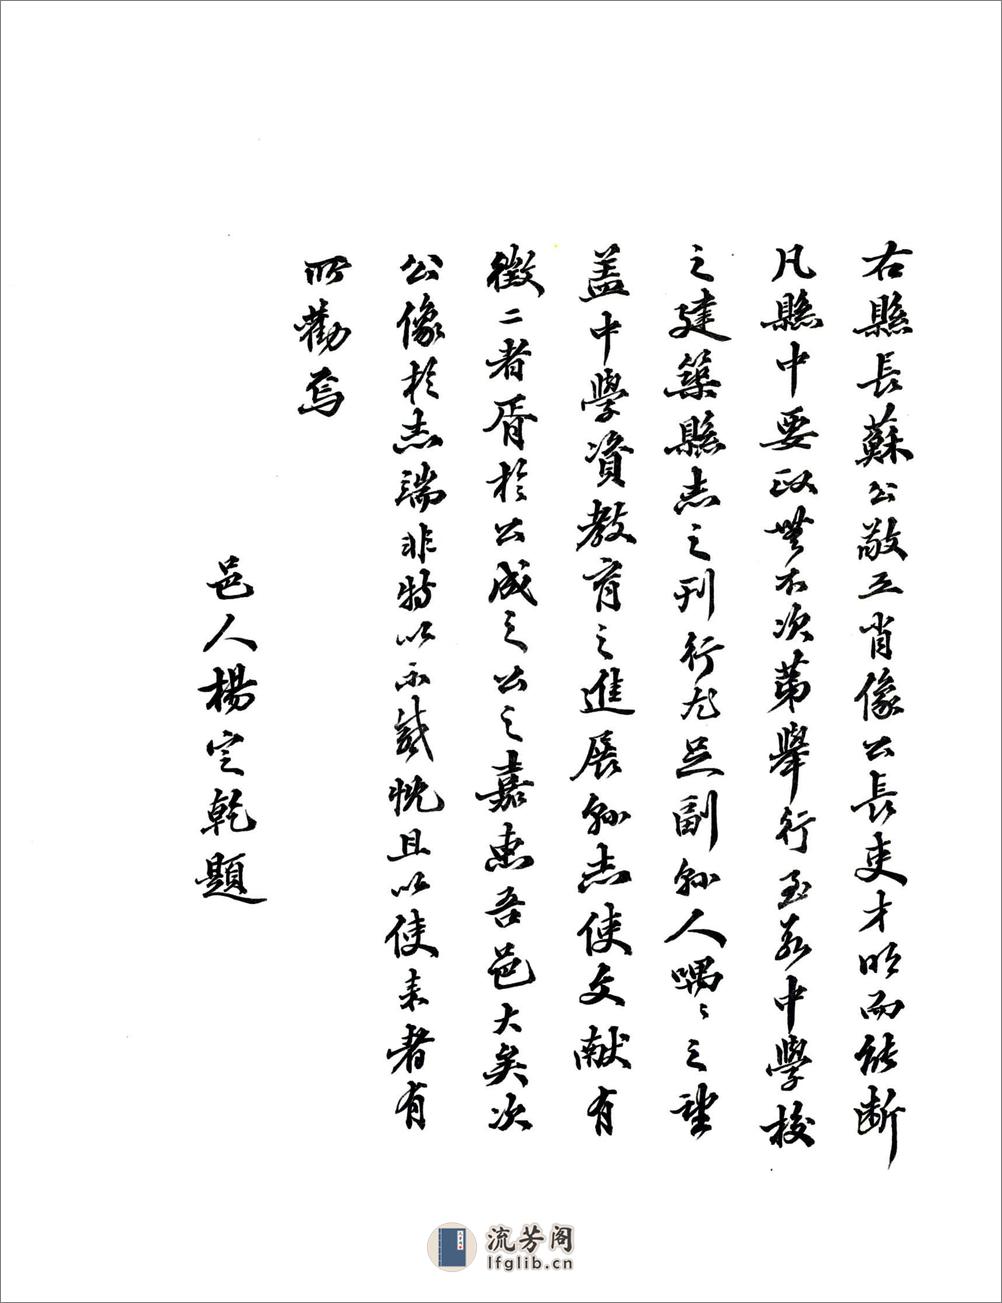 右縣長蘇公敬五肖像公長吏才明而能斷
凡縣中要政無不次第舉行至若中學校
之建築縣志之刊行尤足副縣人喁〻之望
蓋中學資教育之進展縣志使文獻有
徵二者胥於公成之公之嘉惠吾邑大矣次
公像於志端非特以示感忱且以使來者有
所勸焉
邑人楊定乾題
流芳阁
lfglib.cn